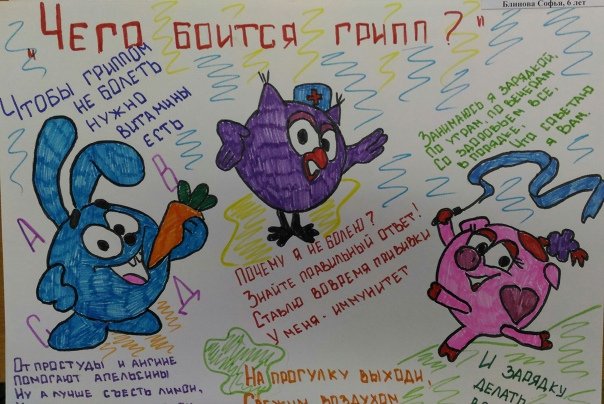 Блинова Софья, 6 лет
"Чего боится грипп?"
Чтобы гриппом
не болеть
нужно
витамины
есть
А
В
С
Д
Занимаюсь я зарядкой,
по утрам, по вечерам
со здоровьем все,
в порядке.
Что советаю
я Вам.
Почему я не болею?
Знайте правильный ответ!
Ставлю вовремя прививки
у меня - иммунитет
От простуды и ангине
помогают апельсины
Ну а лучше съесть лимон,
На прогулку выходи,
Свежим воздухом
И зарядку
делать